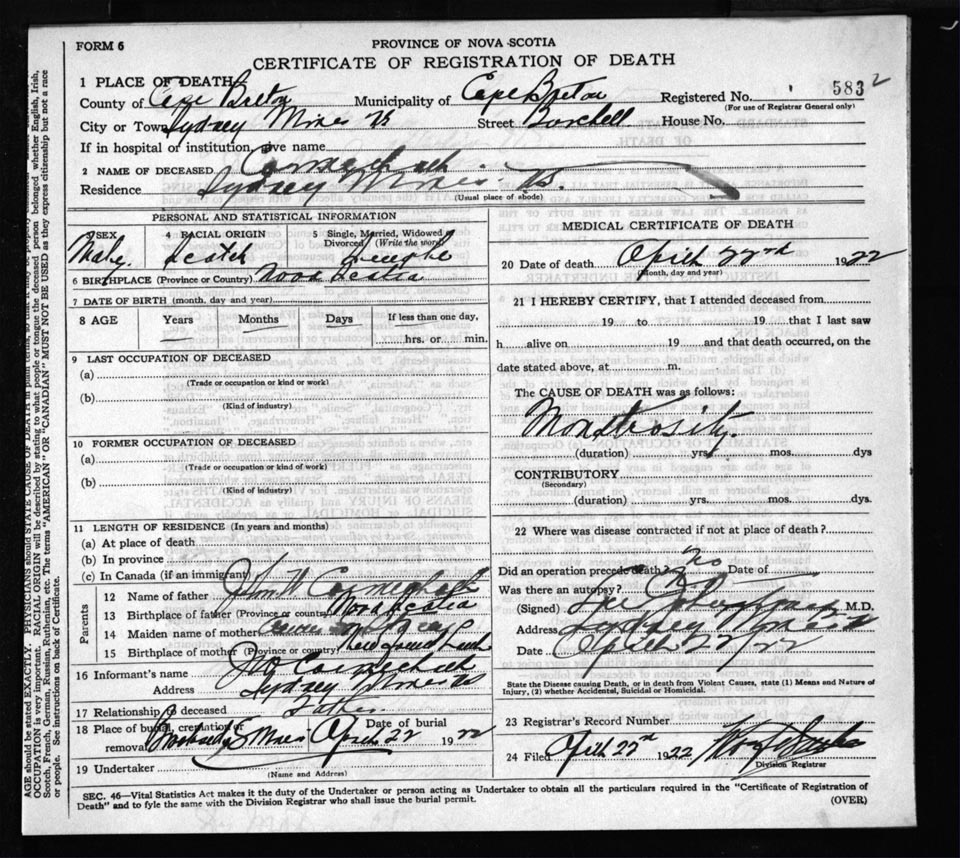 FORM 6
PROVINCE OF NOVA SCOTIA
CERTIFICATE OF REGISTRATION OF DEATH
1 PLACE OF DEATH
County of Cape Breton Municipality of Cape Breton Registered No. 583 2
(For use of Registrar General only)
City or Town Sydney Mines NS Street Burchell House No.
If in hospital or institution, give name
2 NAME OF DECEASED
Residence Sydney Mines NS.
(Usual place of abode)
PERSONAL AND STATISTICAL INFORMATION
3 SEX 4 RACIAL ORIGIN 5 Single, Married, Widowed
Divorced (Write the word)
Male Scotch Single
6 BIRTHPLACE (Province or Country) Nova Scotia
7 DATE OF BIRTH (month, day and year)
8 AGE Years Months Days If less than one day,
hrs. or min.
9 LAST OCCUPATION OF DECEASED
(a)
(Trade or occupation or kind or work)
(b)
(Kind of industry)
10 FORMER OCCUPATION OF DECEASED
(a)
(Trade or occupation or kind or work)
(b)
(Kind of industry)
11 LENGTH OF RESIDENCE (In years and months)
(a) At place of death
(b) In province
(c) In Canada (if an immigrant)
Parents
12 Name of father John W
13 Birthplace of father (Province or country) Nova Scotia
14 Maiden name of mother
15 Birthplace of mother (Province or Country)
16 Informant's name Jno
Address Sydney Mines NS
17 Relationship to deceased Father
18 Place of burial, cremation or removal S Mines Date of burial April 22 1922
19 Undertaker
(Name and Address)
MEDICAL CERTIFICATE OF DEATH
20 Date of death April 22nd 1922
(Month, day and year)
21 I HEREBY CERTIFY, that I attended deceased from
19 to 19 that I last saw
h alive on 19 and that death occurred, on the
date stated above, at m.
The CAUSE OF DEATH was as follows:
Monstrosity.
(duration) yrs. mos. dys
CONTRIBUTORY
(Secondary)
(duration) yrs. mos. dys.
22 Where was disease contracted if not at place of death?
Did an operation precede death? No Date of
Was there an autopsy? No
(Signed) M.D.
Address Sydney Mines
Date April 22/22
State the Disease causing Death, or in death from Violent Causes, state (1) Means and Nature of
Injury, (2) whether Accidental, Suicidal or Homicidal.
23 Registrar's Record Number
24 Filed April 22nd 1922
Division Registrar
SEC. 46—Vital Statistics Act makes it the duty of the Undertaker or person acting as Undertaker to obtain all the particulars required in the "Certificate of Registration of
Death" and to fyle the same with the Division Registrar who shall issue the burial permit.
(OVER)
AGE should be stated EXACTLY. PHYSICIANS should STATE CAUSE OF DEATH in plain terms, so that it may be properly
OCCUPATION is very important. RACIAL ORIGIN will be described by stating to what people or tongue the deceased person belonged whether English, Irish,
Scotch, French, German, Russian, Ruthenian, etc. The terms "AMERICAN" OR "CANADIAN" MUST NOT BE USED as they express citizenship but not a race
or people. See instructions on back of Certificate.